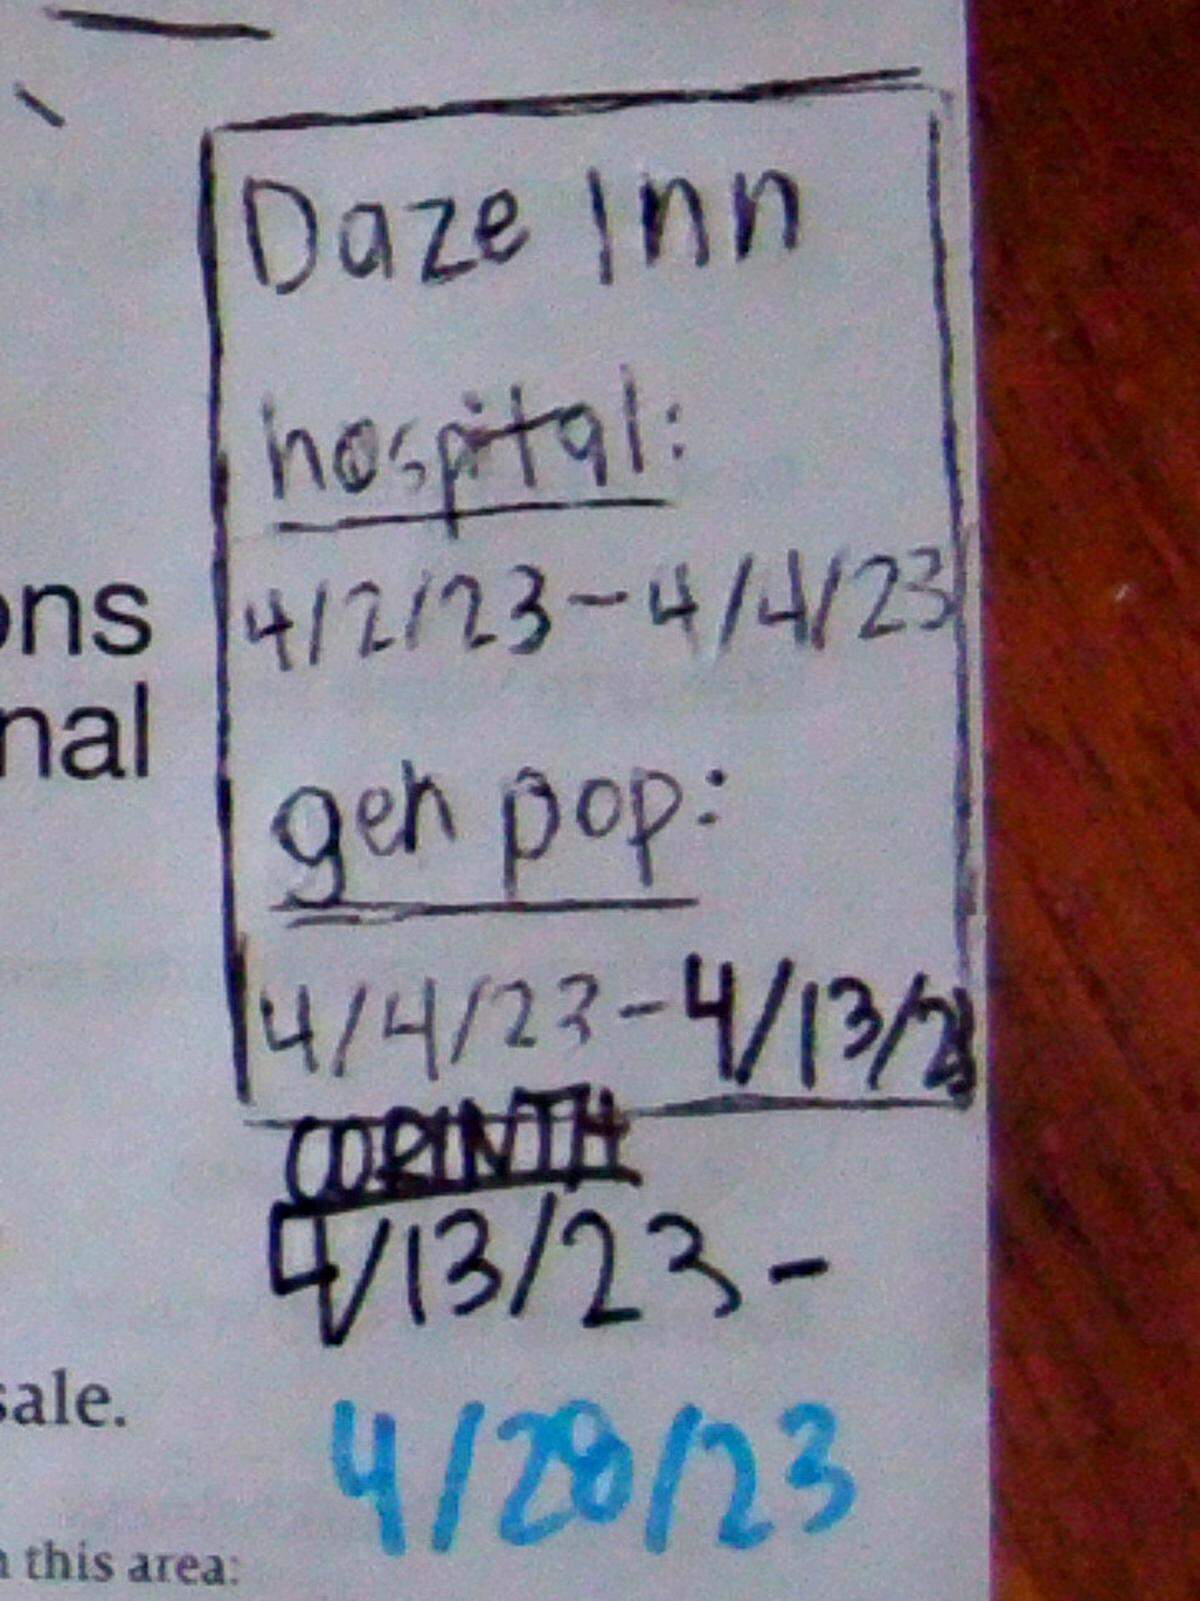 Daze Inn
hospital:
4/2/23 - 4/4/23
ons
nal
gen pop:
4/4/23 - 4/13/23
CORINTH
4/13/23 -
sale.
4/28/23
this area: